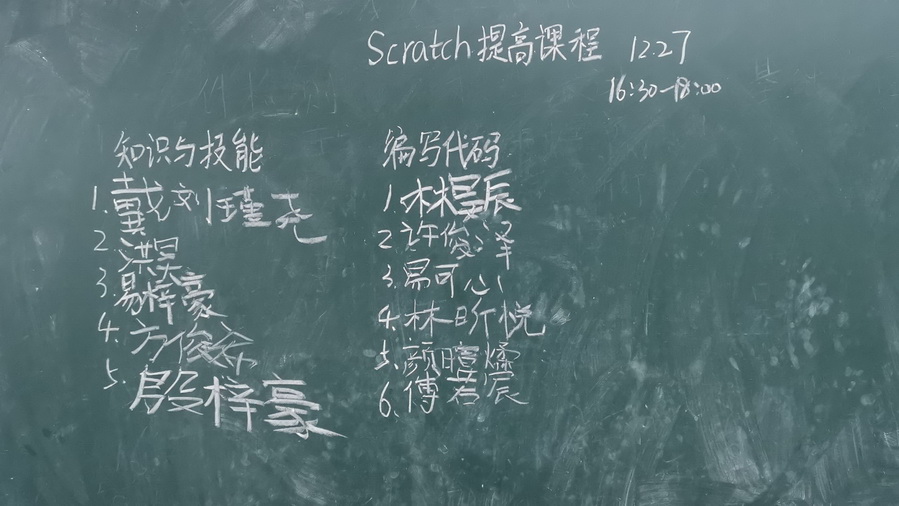 Scratch提高课程 12.27
16:30-18:00
知识与技能
1.戴刘瑾尧
2.洪昊
3.易梓豪
4.方俊淼
5.殷梓豪
编写代码
1.林昊辰
2.许俊泽
3.易可心
4.林昕悦
5.颜暄燏
6.傅若宸